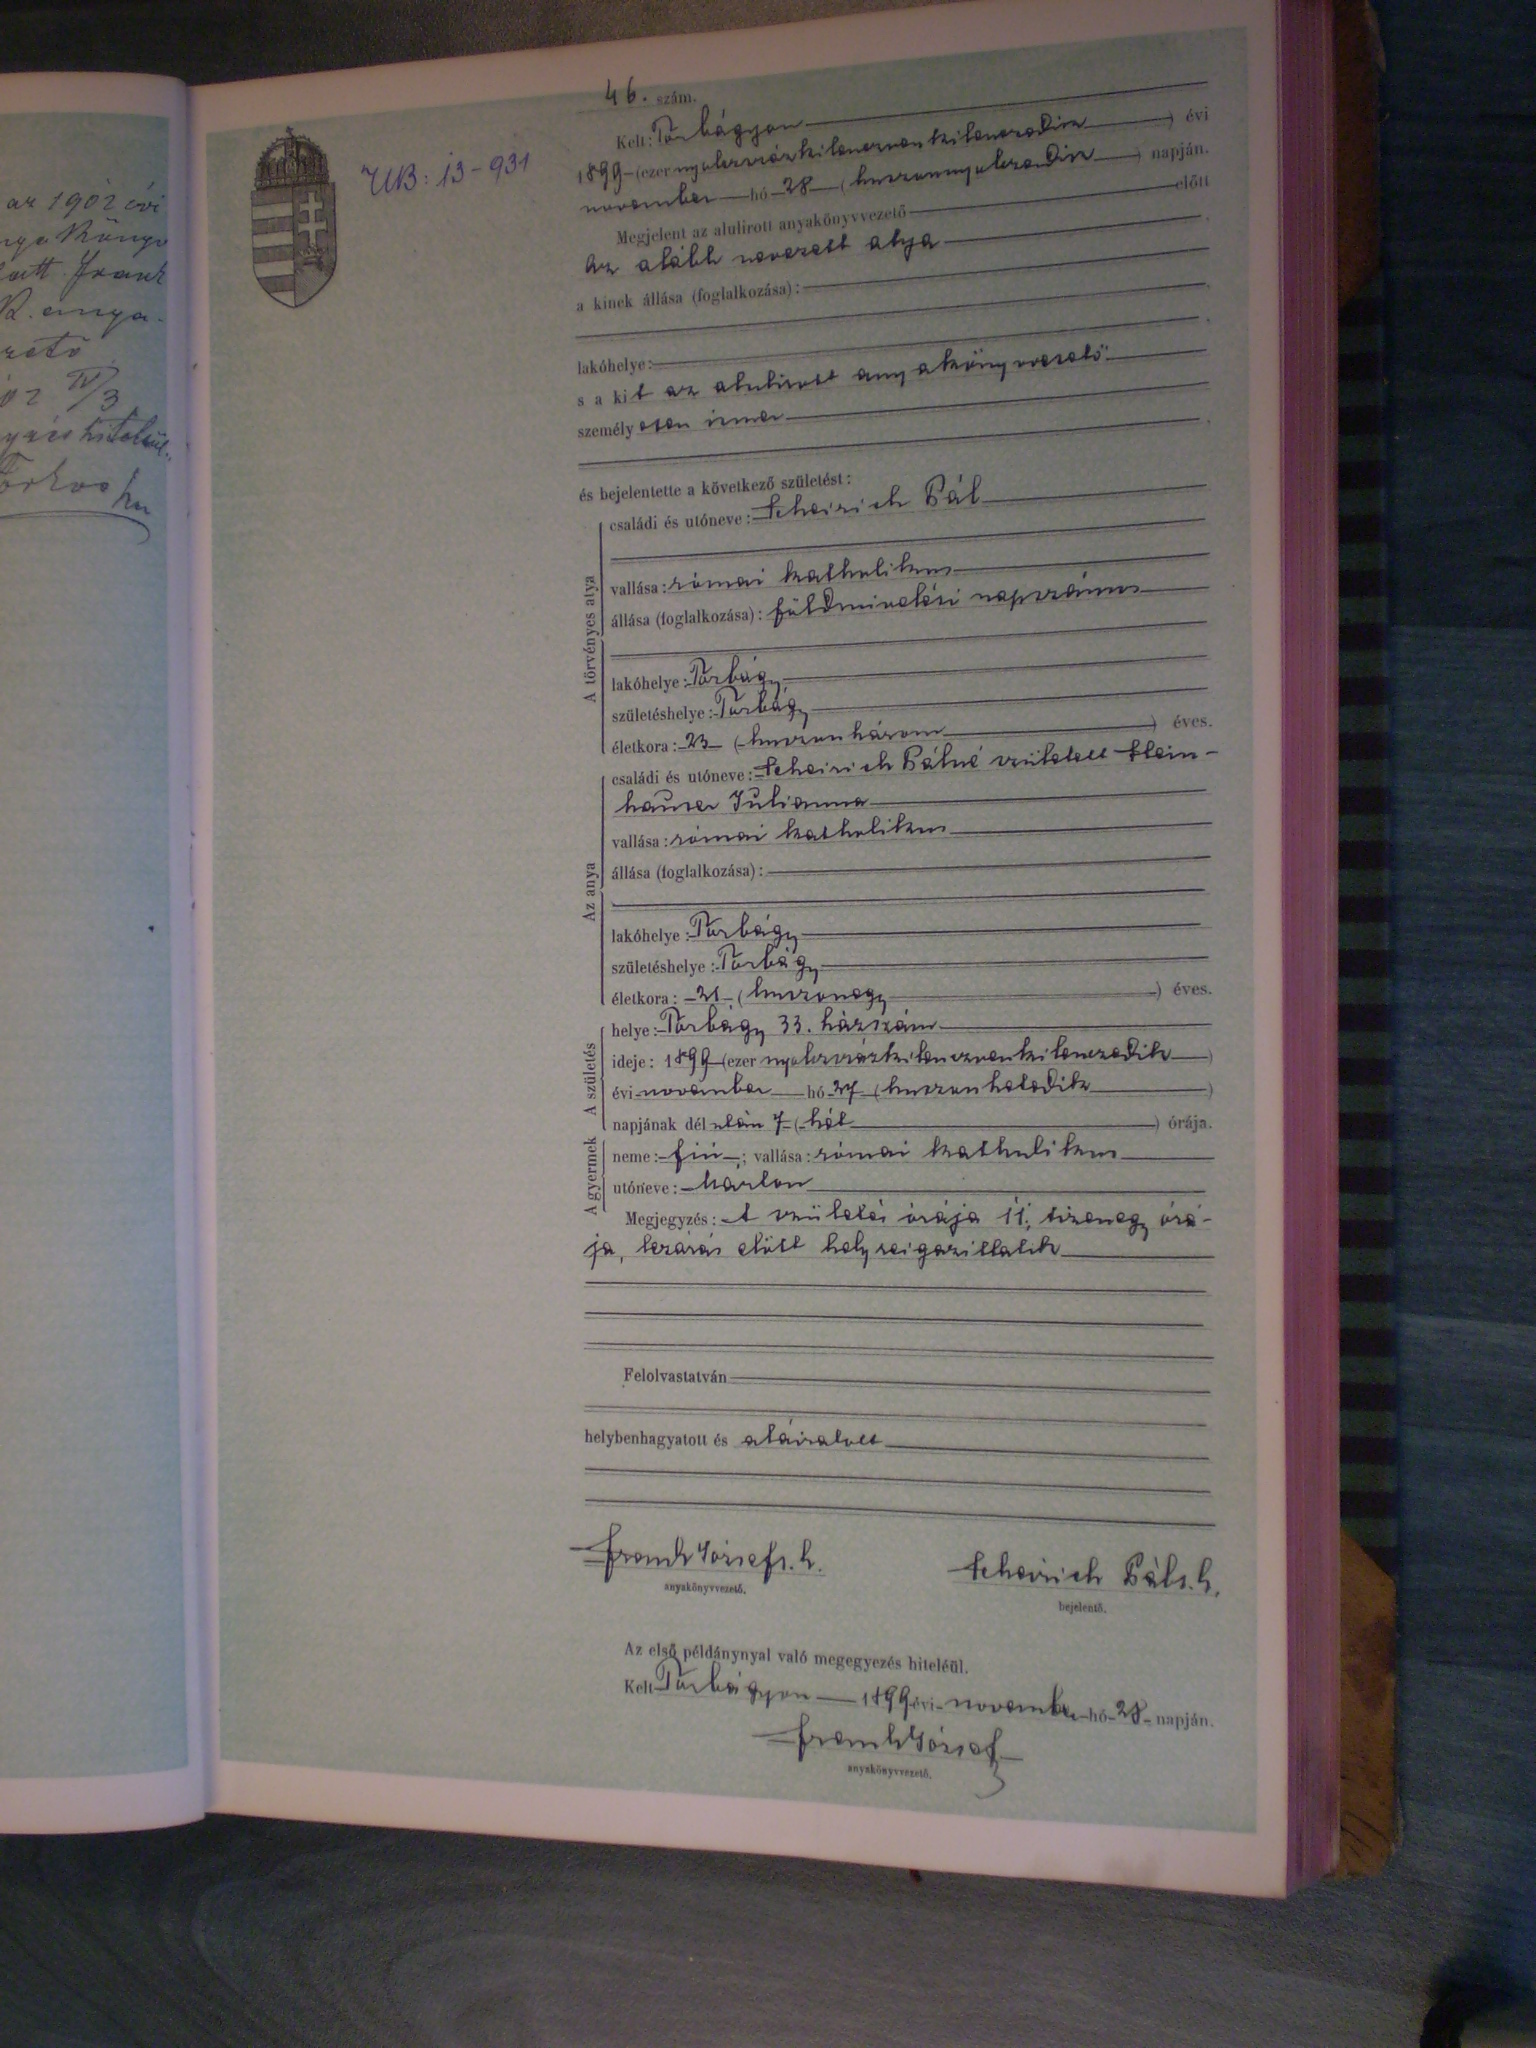 az 1902 évi
Frank
R. anya-
IV/3
UB: 13-931
46. szám.
Kelt: Torbágyon
1899 (ezer nyolczszázkilenczvenkilenczedik) évi
november hó 28 (huszonnyolczadik) napján.
Megjelent az alulirott anyakönyvvezető előtt
az alább nevezett atya
a kinek állása (foglalkozása):
lakóhelye:
s a kit az alulirott anyakönyvvezető
személyesen ismer
és bejelentette a következő születést:
A törvényes atya
családi és utóneve: Scheirich Pál
vallása: római katholikus
állása (foglalkozása): földmivelési napszámos
lakóhelye: Torbágy
születéshelye: Torbágy
életkora: 23 (huszonhárom) éves.
Az anya
családi és utóneve: Scheirich Pálné született Stein-
hauser Julianna
vallása: római katholikus
állása (foglalkozása):
lakóhelye: Torbágy
születéshelye: Torbágy
életkora: 21 (huszonegy) éves.
A születés
helye: Torbágy 33. házszám
ideje: 1899 (ezer nyolczszázkilenczvenkilenczedik)
évi november hó 27 (huszonhetedik)
napjának dél után 7 (hét) órája.
A gyermek
neme: fiú; vallása: római katholikus
utóneve: Márton
Megjegyzés: A születés órája 11, tizenegy órá-
ja, lezárás előtt helyreigazittatik
Felolvastatván
helybenhagyatott és aláiratott
Frank József s. k.
anyakönyvvezető.
Scheirich Pál s. k.
bejelentő.
Az első példánynyal való megegyezés hiteléül.
Kelt Torbágyon 1899 évi november hó 28 napján.
Frank József
anyakönyvvezető.